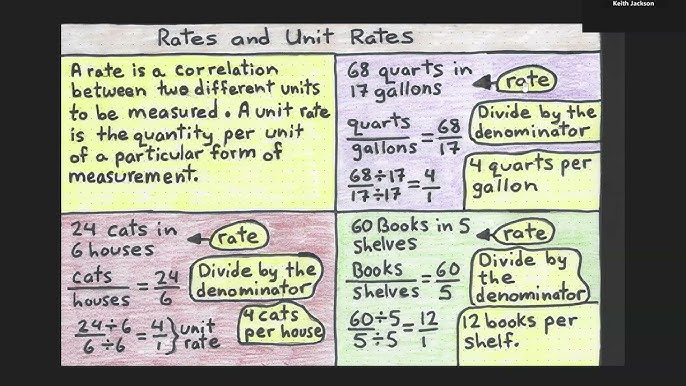 Keith Jackson
Rates and Unit Rates
A rate is a correlation
between two different units
to be measured. A unit rate
is the quantity per unit
of a particular form of
measurement.
68 quarts in
17 gallons
rate
quarts
gallons
= 68
17
68÷17
17÷17
= 4
1
Divide by the
denominator
4 quarts per
gallon
24 cats in
6 houses
rate
cats
houses
= 24
6
24÷6
6÷6
= 4
1
} unit
rate
Divide by the
denominator
4 cats
per house
60 Books in 5
shelves
rate
Books
shelves
= 60
5
60÷5
5÷5
= 12
1
Divide by
the
denominator
12 books per
shelf.